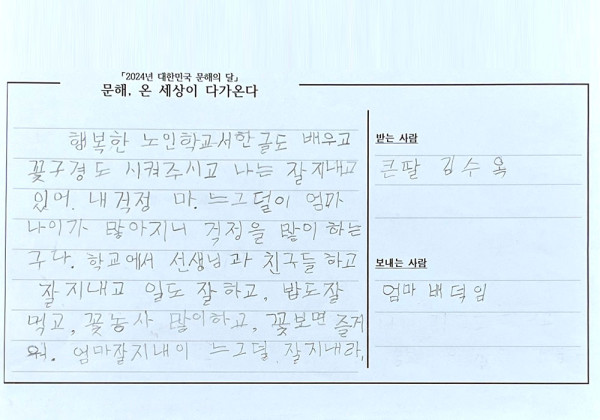 「2024년 대한민국 문해의 달」
문해, 온 세상이 다가온다
행복한 노인학교서한글도 배우고
꽃구경도 시켜주시고 나는 잘지내고
있어. 내걱정 마. 느그덜이 엄마
나이가 많아지니 걱정을 많이 하는
구나. 학교에서 선생님과 친구들하고
잘지내고 일도 잘하고, 밥도잘
먹고, 꽃농사 많이하고, 꽃보면 즐거
워. 엄마잘지내이 느그덜 잘지내라,
받는 사람
큰딸 김수옥
보내는 사람
엄마 배덕임